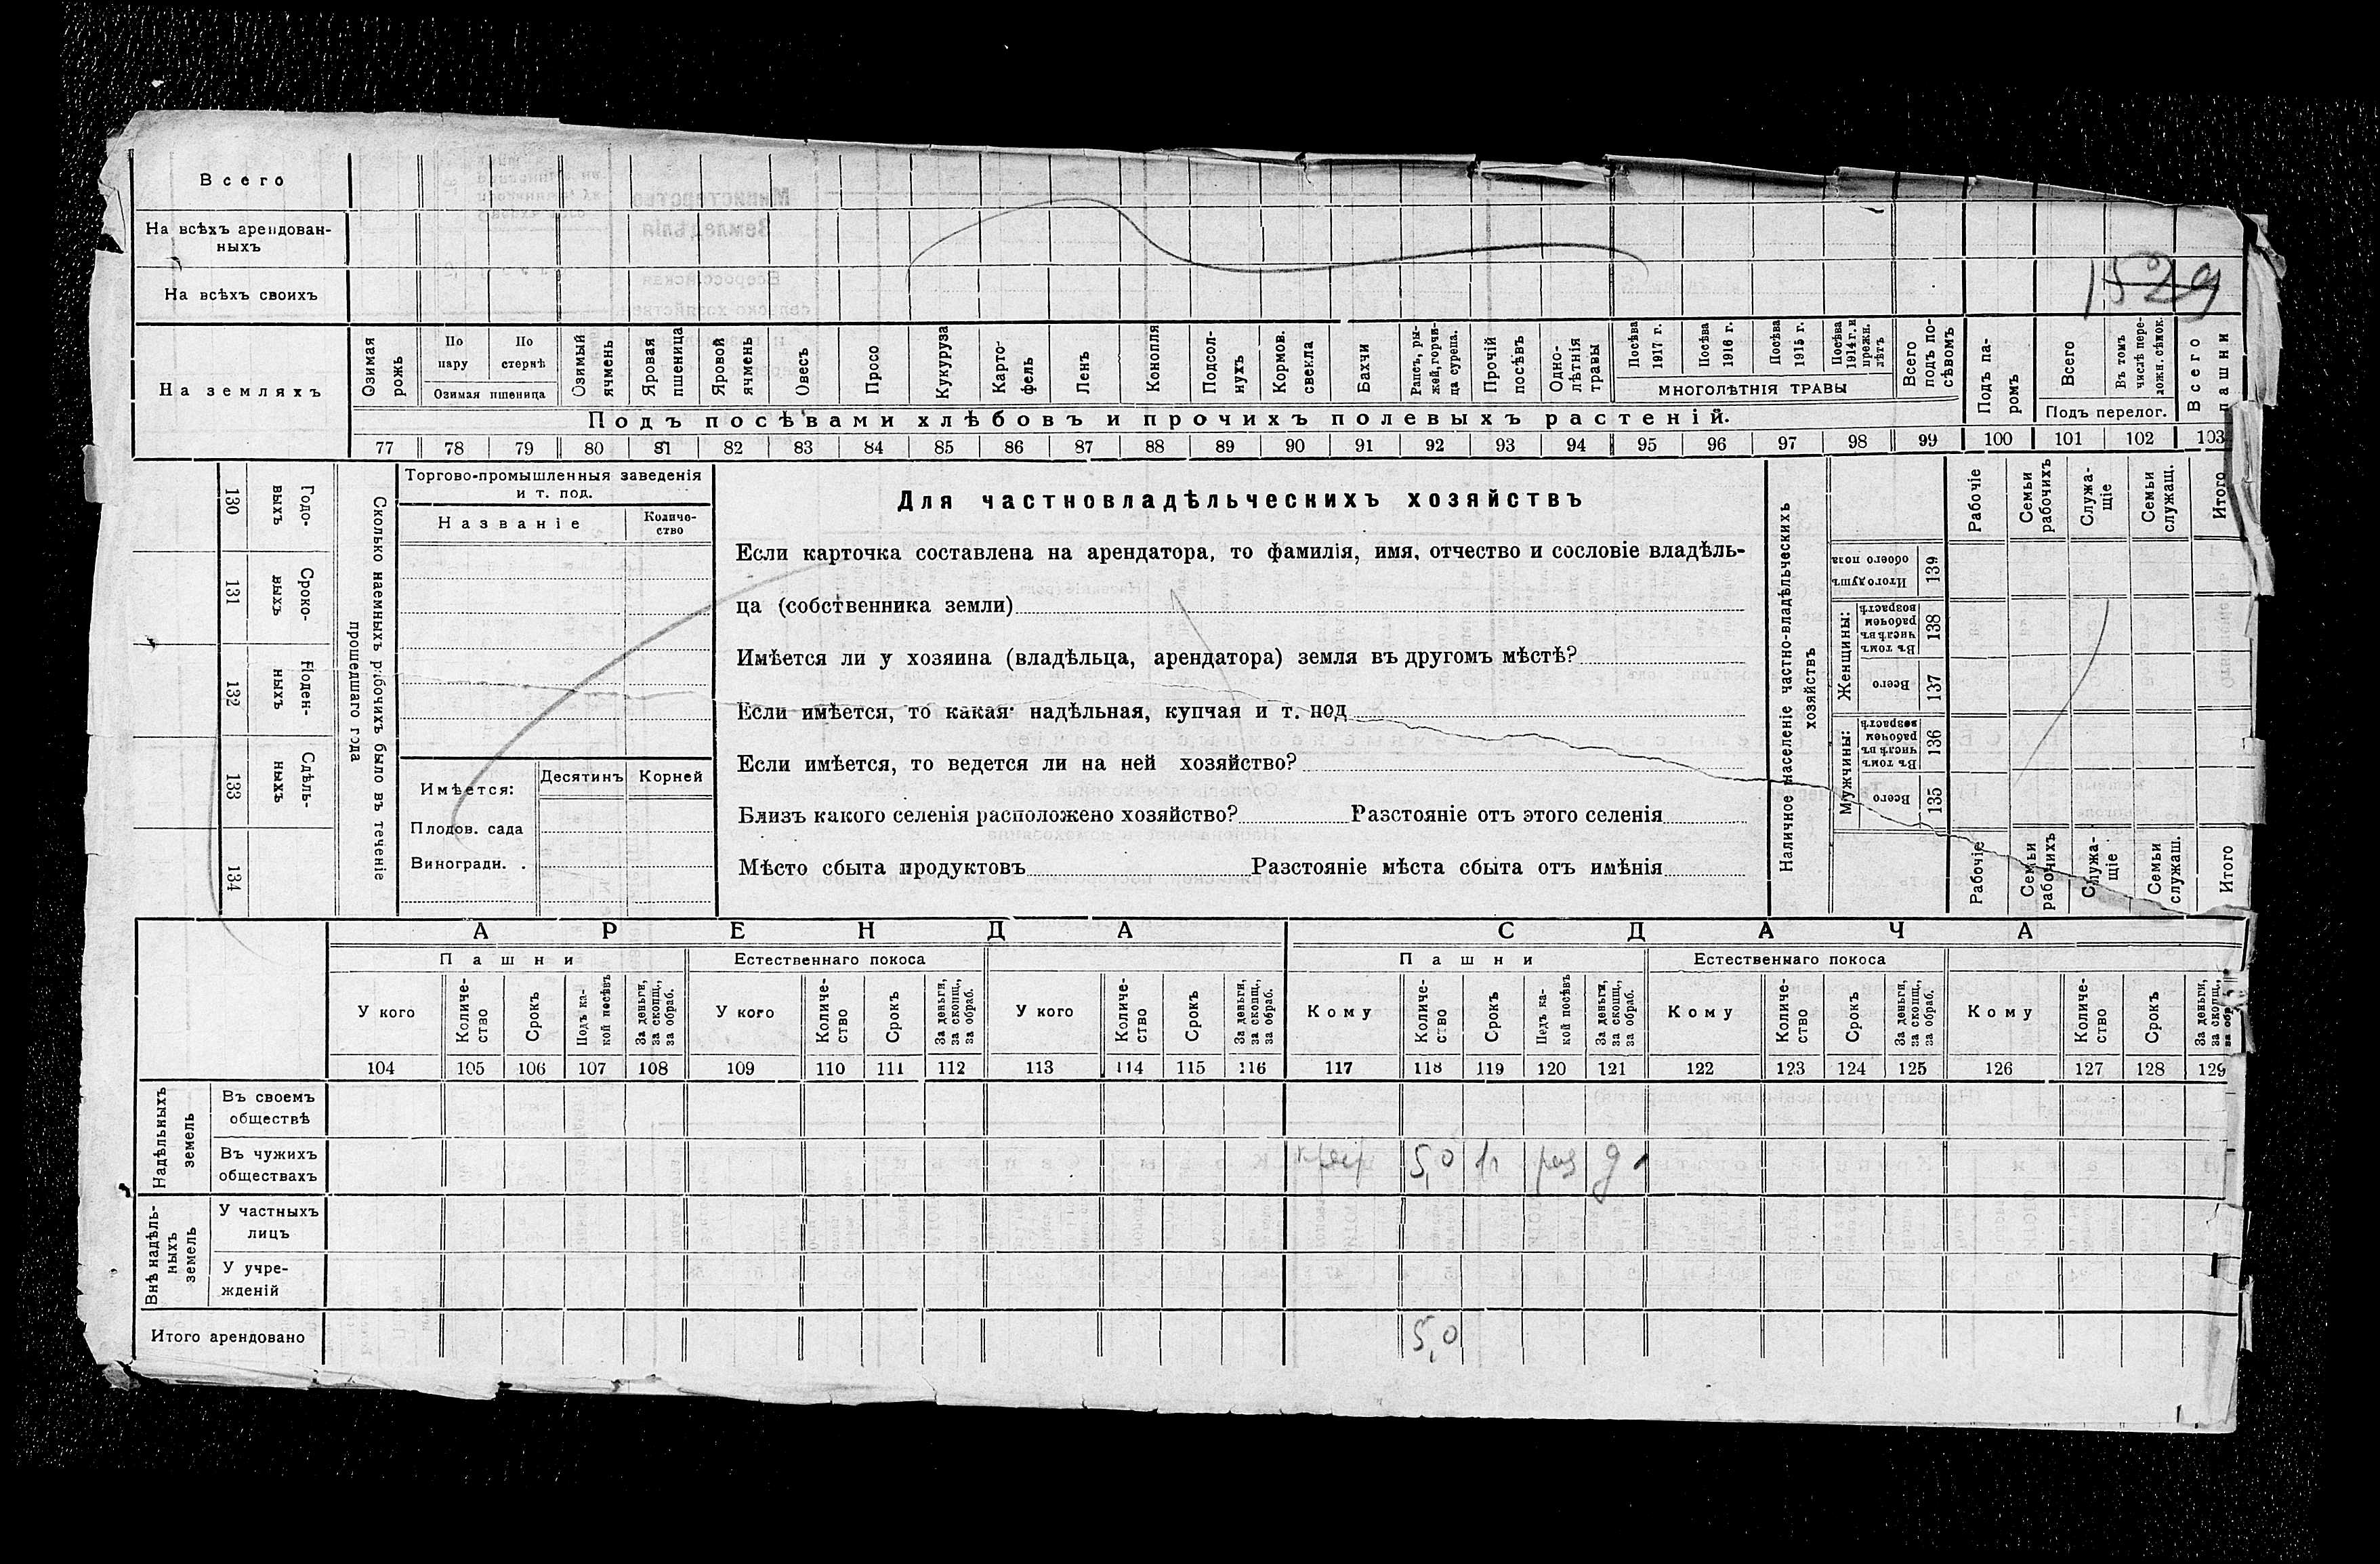 Всего
На всѣхъ арендован-
ныхъ
На всѣхъ своихъ
1529
На земляхъ
Озимая рожь
По пару
По стернѣ
Озимая пшеница
Озимый ячмень
Яровая пшеница
Яровой ячмень
Овесъ
Просо
Кукуруза
Карто-
фель
Ленъ
Конопля
Подсол-
нухъ
Кормов. свекла
Бахчи
Рапсъ, ры-
жей, горчи-
ца сурепа.
Прочій посѣвъ
Одно-
лѣтнія
травы
Посѣва 1917 г.
Посѣва 1916 г.
Посѣва 1915 г.
Посѣва 1914 г. и прежн. лѣтъ
МНОГОЛѢТНІЯ ТРАВЫ
Всего подъ по-
сѣвомъ
Подъ па-
ромъ
Всего
Въ томъ числѣ пере-
ложн. сѣнок.
Подъ перелог.
Всего пашни
Подъ посѣвами хлѣбовъ и прочихъ полевыхъ растеній.
77 78 79 80 81 82 83 84 85 86 87 88 89 90 91 92 93 94 95 96 97 98 99 100 101 102 103
130 Годо-
выхъ
131 Сроко-
выхъ
132 Поден-
ныхъ
133 Сдѣль-
ныхъ
134
Сколько наемныхъ рабочихъ было въ теченіе
прошедшаго года
Торгово-промышленныя заведенія
и т. под.
Названіе
Количе-
ство
Имѣется:
Десятинъ
Корней
Плодов. сада
Виноградн. .
Для частновладѣльческихъ хозяйствъ
Если карточка составлена на арендатора, то фамилія, имя, отчество и сословіе владѣль-
ца (собственника земли)
Имѣется ли у хозяина (владѣльца, арендатора) земля въ другомъ мѣстѣ?
Если имѣется, то какая: надѣльная, купчая и т. под
Если имѣется, то ведется ли на ней хозяйство?
Близъ какого селенія расположено хозяйство? Разстояніе отъ этого селенія
Мѣсто сбыта продуктовъ Разстояніе мѣста сбыта отъ имѣнія
Наличное населеніе частно-владѣльческихъ
хозяйствъ
Рабочіе
Семьи рабочихъ
Служа-
щіе
Семьи служащ.
Итого
Итого душъ обоего пола 139
Женщины:
Въ томъ числѣ въ рабочемъ возрастѣ 138
Всего 137
Мужчины:
Въ томъ числѣ въ рабочем возрастѣ 136
Всего 135
Рабочіе
Семьи рабочихъ
Служа-
щіе
Семьи служащ.
Итого
АРЕНДА
СДАЧА
Пашни
Естественнаго покоса
Пашни
Естественнаго покоса
У кого
Количе-
ство
Срокъ
Подъ ка-
кой посѣвъ
За деньги, за скопщ., за обраб.
У кого
Количе-
ство
Срокъ
За деньги, за скопщ., за обраб.
У кого
Количе-
ство
Срокъ
За деньги, за скопщ., за обраб.
Кому
Количе-
ство
Срокъ
Подъ ка-
кой посѣвъ
За деньги, за скопщ., за обраб.
Кому
Количе-
ство
Срокъ
За деньги, за скопщ., за обраб.
Кому
Количе-
ство
Срокъ
За деньги, за скопщ., за обр
104 105 106 107 108 109 110 111 112 113 114 115 116 117 118 119 120 121 122 123 124 125 126 127 128 129
Надѣльныхъ земель
Въ своемъ
обществѣ
Въ чужихъ
обществахъ
5,0
Внѣ надѣль-
ныхъ
земель
У частныхъ
лицъ
У учре-
жденій
Итого арендовано
5,0